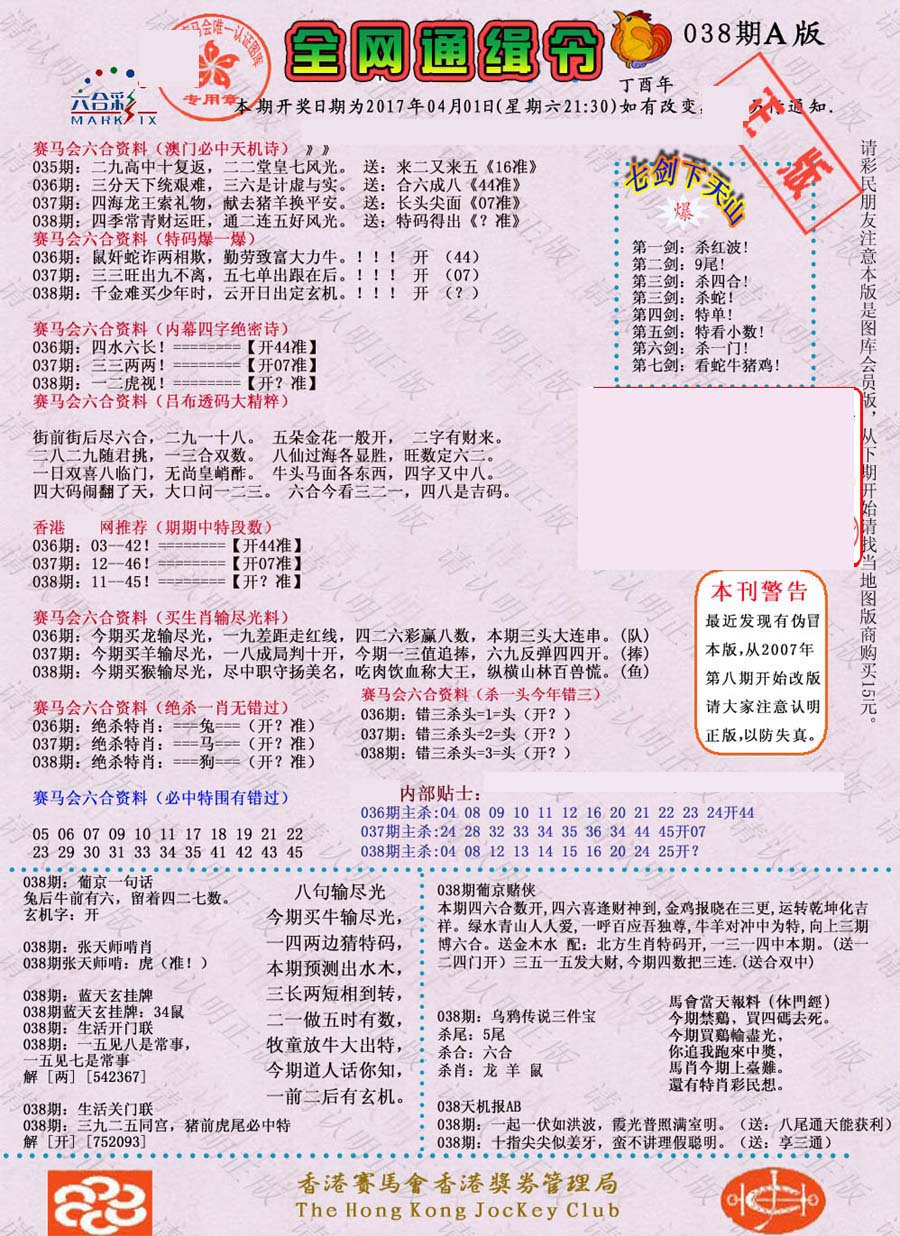 全网通缉令
038期A版
丁酉年
马会唯一认证图库
专用章
六合彩
MARK SIX
本期开奖日期为2017年04月01日(星期六21:30)如有改变
通知.
正版
赛马会六合资料（澳门必中天机诗）》》
035期：二九高中十复返，二二堂皇七风光。 送：来二又来五《16准》
036期：三分天下统艰难，三六是计虚与实。 送：合六成八《44准》
037期：四海龙王索礼物，献去猪羊换平安。 送：长头尖面《07准》
038期：四季常青财运旺，通二连五好风光。 送：特码得出《？准》
赛马会六合资料（特码爆一爆）
036期：鼠奸蛇诈两相欺，勤劳致富大力牛。！！！ 开 （44）
037期：三三旺出九不离，五七单出跟在后。！！！ 开 （07）
038期：千金难买少年时，云开日出定玄机。！！！ 开 （？）
赛马会六合资料（内幕四字绝密诗）
036期：四水六长！========【开44准】
037期：三三两两！========【开07准】
038期：一二虎视！========【开？准】
赛马会六合资料（吕布透码大精粹）
街前街后尽六合，二九一十八。 五朵金花一般开， 二字有财来。
二八二九随君挑，一三合双数。 八仙过海各显胜，旺数定六二。
一日双喜八临门，无尚皇峭酢。 牛头马面各东西，四字又中八。
四大码闹翻了天，大口问一二三。 六合今看三二一，四八是吉码。
香港 网推荐（期期中特段数）
036期：03--42！========【开44准】
037期：12--46！========【开07准】
038期：11--45！========【开？准】
赛马会六合资料（买生肖输尽光料）
036期：今期买龙输尽光，一九差距走红线，四二六彩赢八数，本期三头大连串。(队)
037期：今期买羊输尽光，一八成局判十开，今期一三值追捧，六九反弹四四开。(捧)
038期：今期买猴输尽光，尽中职守扬美名，吃肉饮血称大王，纵横山林百兽慌。(鱼)
赛马会六合资料（绝杀一肖无错过）
036期：绝杀特肖：===兔===（开？准）
037期：绝杀特肖：===马===（开？准）
038期：绝杀特肖：===狗===（开？准）
赛马会六合资料（杀一头今年错三）
036期：错三杀头=1=头（开？）
037期：错三杀头=2=头（开？）
038期：错三杀头=3=头（开？）
赛马会六合资料（必中特围有错过）
05 06 07 09 10 11 17 18 19 21 22
23 29 30 31 33 34 35 41 42 43 45
内部贴士：
036期主杀:04 08 09 10 11 12 16 20 21 22 23 24开44
037期主杀:24 28 32 33 34 35 36 34 44 45开07
038期主杀:04 08 12 13 14 15 16 20 24 25开?
七剑下天山
爆
第一剑：杀红波！
第二剑：9尾！
第三剑：杀四合！
第三剑：杀蛇！
第四剑：特单！
第五剑：特看小数！
第六剑：杀一门！
第七剑：看蛇牛猪鸡！
请彩民朋友注意本版是图库会员版，从下期开始请找当地图版商购买15元。
本刊警告
最近发现有伪冒
本版,从2007年
第八期开始改版
请大家注意认明
正版,以防失真。
038期：葡京一句话
兔后牛前有六，留着四二七数。
玄机字：开
038期：张天师啃肖
038期张天师啃：虎（准！）
038期：蓝天玄挂牌
038期蓝天玄挂牌：34鼠
038期：生活开门联
038期：一五见八是常事，
一五见七是常事
解 [两] [542367]
038期：生活关门联
038期：三九二五同宫，猪前虎尾必中特
解 [开] [752093]
八句输尽光
今期买牛输尽光，
一四两边猜特码，
本期预测出水木，
三长两短相到转，
二一做五时有数，
牧童放牛大出特，
今期道人话你知，
一前二后有玄机。
038期葡京赌侠
本期四六合数开,四六喜逢财神到,金鸡报晓在三更,运转乾坤化吉
祥。绿水青山人人爱,一呼百应吾独尊,牛羊对冲中为特,向上三期
博六合。送金木水 配：北方生肖特码开,一三一四中本期。(送一
二四门开）三五一五发大财,今期四数把三连.(送合双中)
038期：乌鸦传说三件宝
杀尾：5尾
杀合：六合
杀肖：龙 羊 鼠
馬會當天報料（休門經）
今期禁鷄、買四碼去死。
今期買鷄輸盡光，
你追我跑來中獎，
馬肖今期上臺難。
還有特肖彩民想。
038天机报AB
038期：一起一伏如洪波，霞光普照满室明。（送：八尾通天能获利）
038期：十指尖尖似姜牙，蛮不讲理假聪明。（送：享三通）
香港賽馬會香港獎券管理局
The Hong Kong JocKey Club